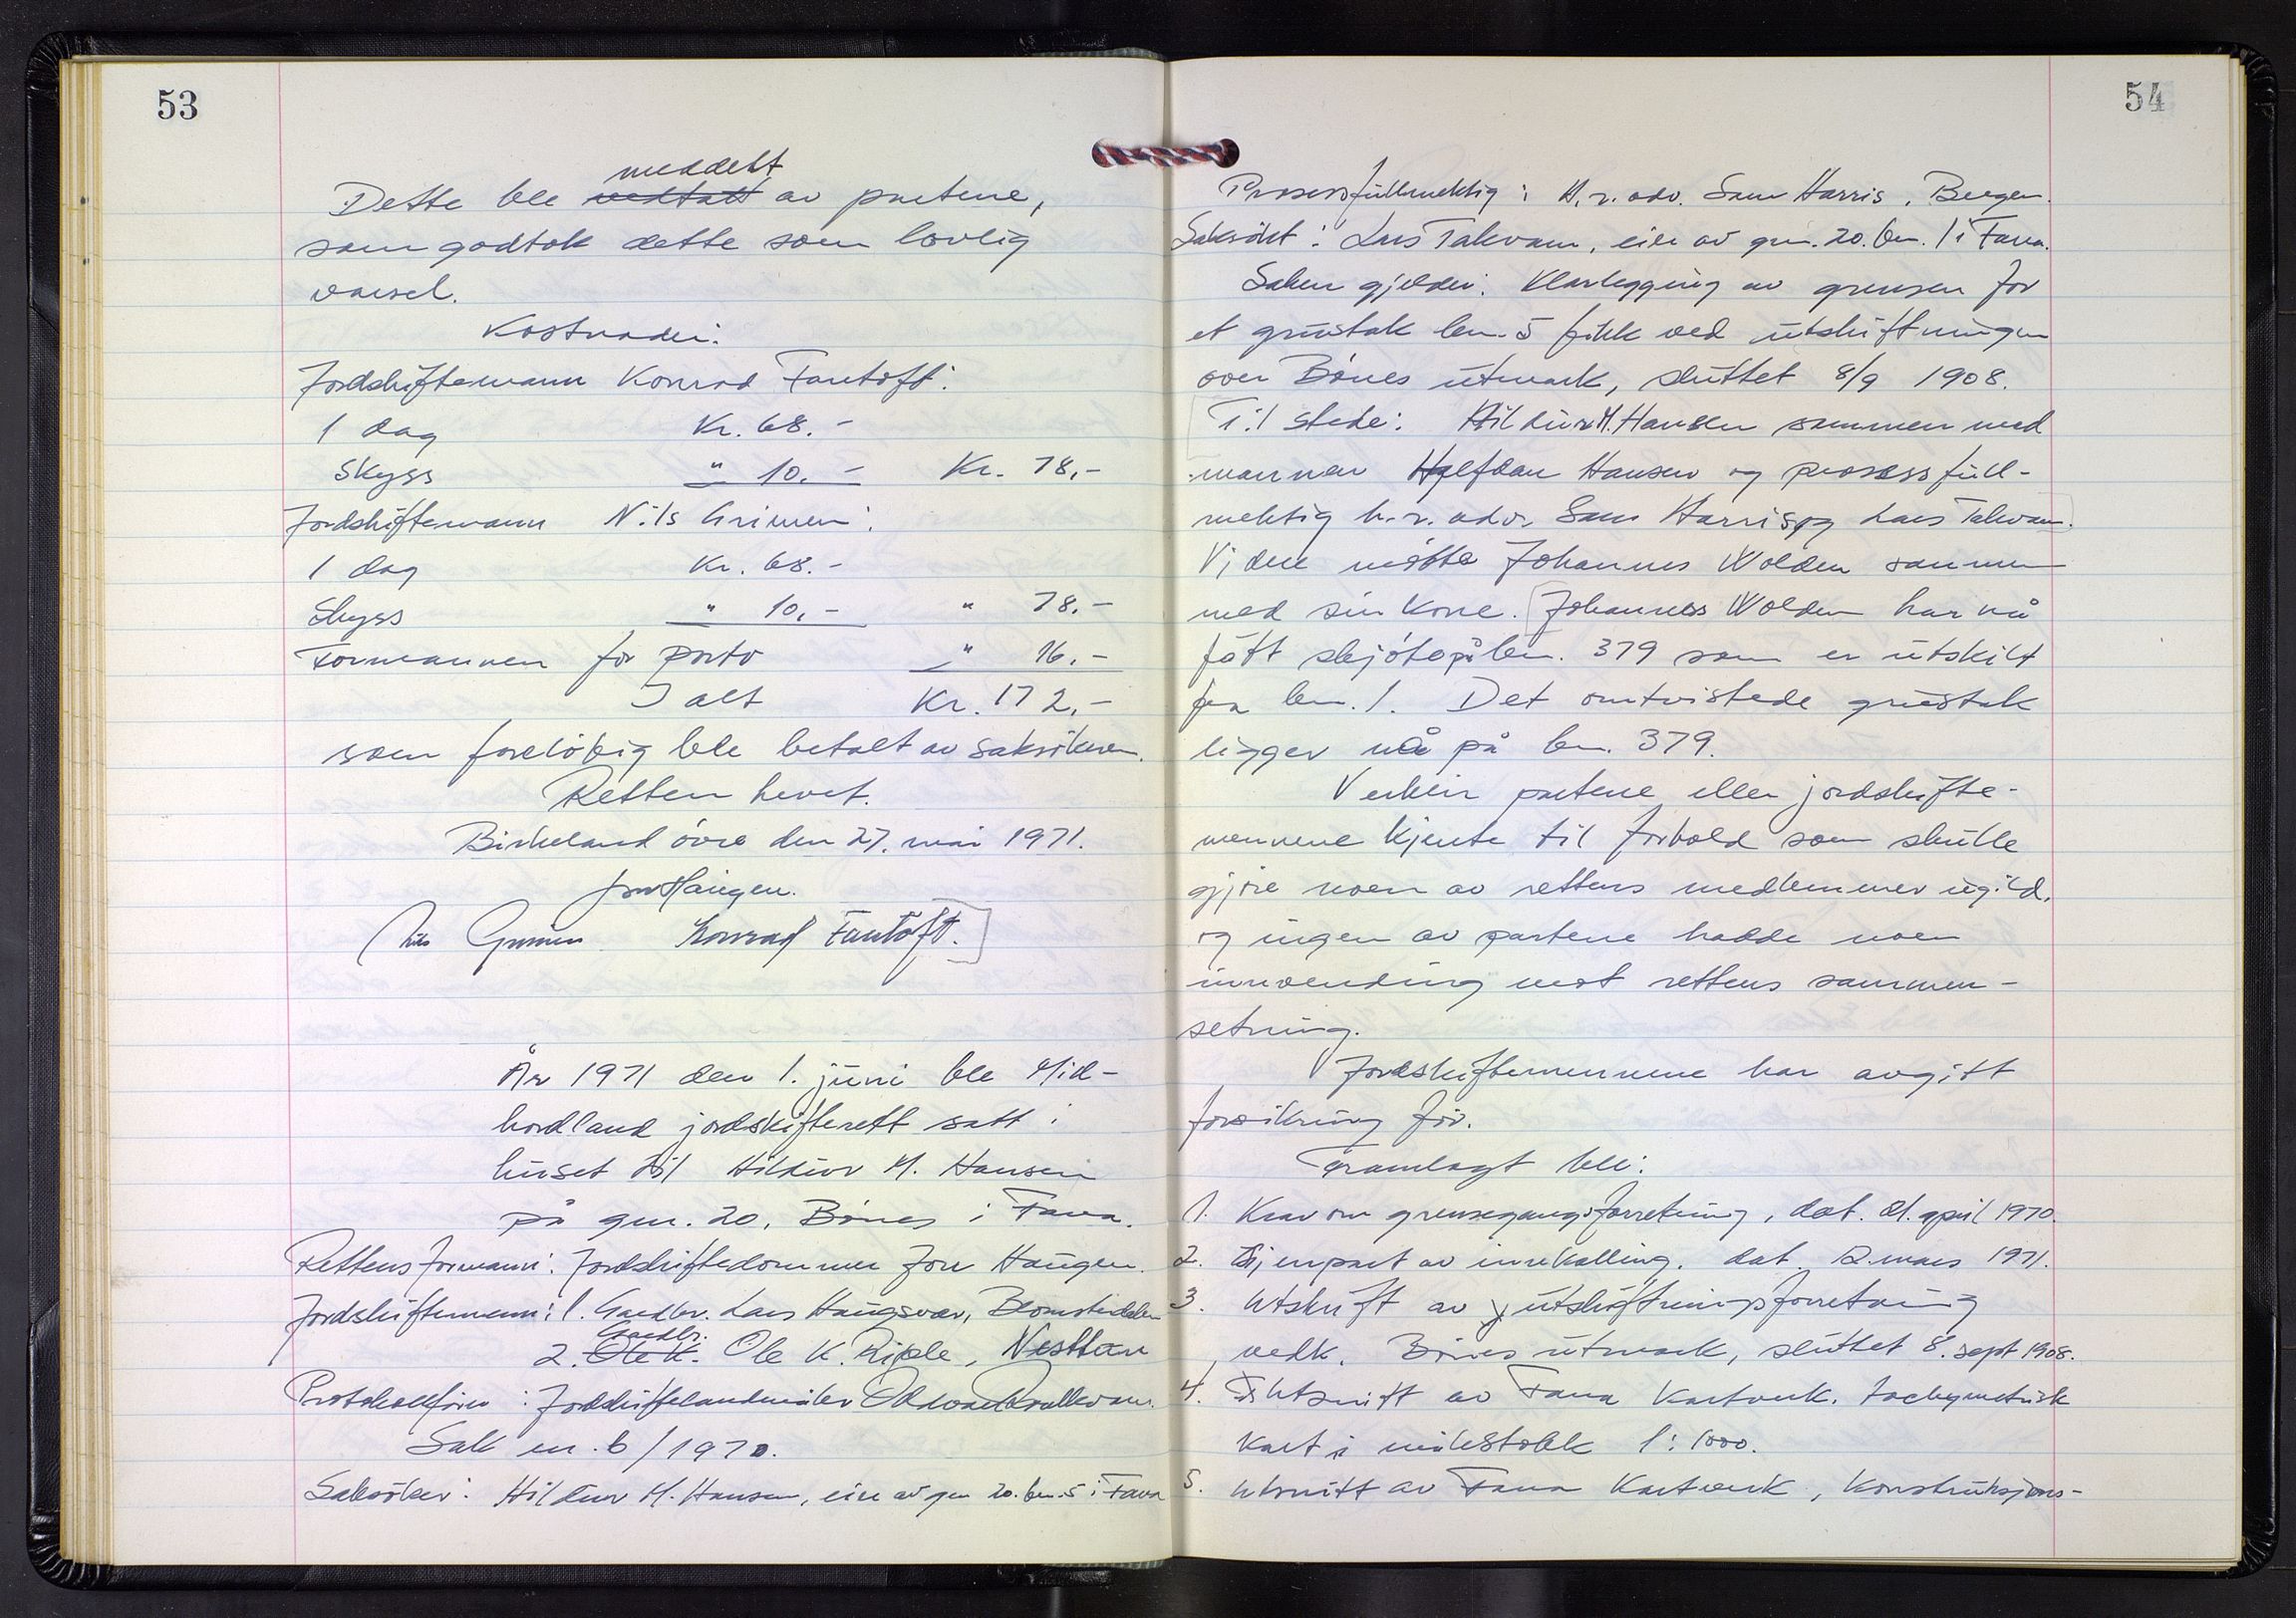 53
Dette ble vedtatt meddelt av partene,
som godtok dette som lovlig
varsel.
Kostnader:
Jordskiftemann Konrad Fantoft:
1 dag Kr. 68.-
Skyss " 10.- Kr. 78,-
Jordskiftemann Nils Grimen:
1 dag Kr. 68.-
Skyss " 10,- " 78,-
Formannen for porto " 16,-
I alt Kr. 172,-
som foreløbig ble betalt av saksøkeren.
Retten hevet.
Birkeland øvre den 27. mai 1971.
Jon Haugen.
Nils Grimen Konrad Fantoft.
År 1971 den 1. juni ble Mid-
hordland jordskifterett satt i
huset til Hildur M. Hansen
på gnr. 20, Bønes i Fana.
Rettens formann: Jordskiftedommer Jon Haugen.
Jordskiftemenn: 1. Gardbr. Lars Haugsvær, Blomsterdalen
2. Ole K. Gardbr. Ole K. Riple, Nesttun
Protokollfører: Jordskiftelandmåler
Sak nr. 6/1970.
Saksøker: Hildur M. Hansen, eier av gnr 20. bnr. 5 i Fana
54
Prosessfullmektig: H.r.adv. Sam Harris, Bergen.
Saksøkt: Lars Takvam, eier av gnr. 20. bnr. 1 i Fana.
Saken gjelder: Klarlegging av grensen for
et grustak bnr. 5 fikk ved utskiftningen
over Bønes utmark, sluttet 8/9 1908.
Til stede: Hildur M. Hansen sammen med
mannen Halfdan Hansen og prosessfull-
mektig h.r. adv. Sam Harris og Lars Takvam.
Videre møtte Johannes Wolden sammen
med sin kone. Johannes Wolden har nå
fått skjøte på bnr. 379 som er utskilt
fra bnr. 1. Det omtvistede grustak
ligger nå på bnr. 379.
Verken partene eller jordskifte-
mennene kjente til forhold som skulle
gjøre noen av rettens medlemmer ugild,
og ingen av partene hadde noen
innvending mot rettens sammen-
setning.
Jordskiftemennene har avgitt
forsikring før.
Framlagt ble:
1. Krav om grensegangsforretning, dat. 21. april 1970.
2. Gjenpart av innkalling, dat. 12. mars 1971.
3. Utskrift av utskiftningsforretning
vedk. Bønes utmark, sluttet 8. sept 1908.
4. Utsnitt av Fana Kartverk. tachymetrisk
kart i målestokk 1:1000.
5. Utsnitt av Fana Kartverk, Konstruksjons-